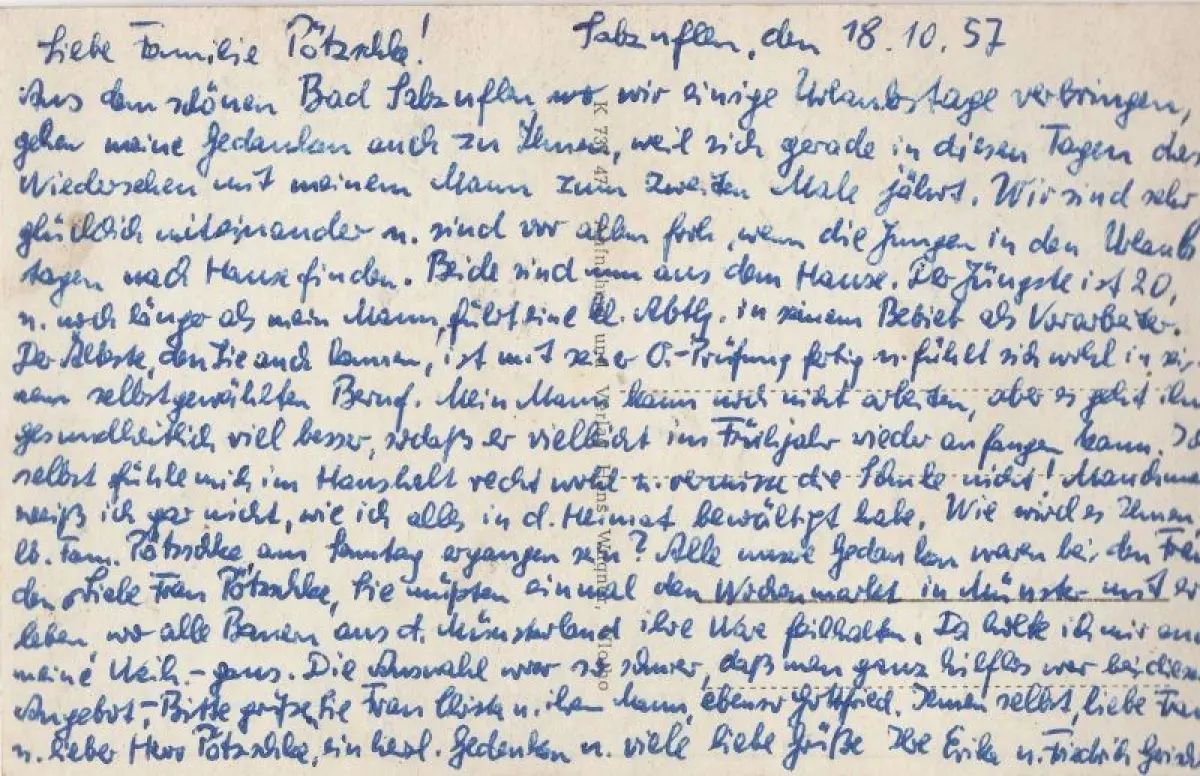 Salzuflen, den 18.10.57
Liebe Familie Pötzschke!
Aus dem schönen Bad Salzuflen, wo wir einige Urlaubstage verbringen,
gehen meine Gedanken auch zu Ihnen, weil sich gerade in diesen Tagen das
Wiedersehen mit meinem Mann zum zweiten Male jährt. Wir sind sehr
glücklich miteinander u. sind vor allem froh, wenn die Jungen in den Urlaubs
tagen nach Hause finden. Beide sind nun aus dem Hause. Der Jüngste ist 20,
u. noch länger als mein Mann, führt eine kl. Abtlg. in seinem Betrieb als Vorarbeiter.
Der Älteste, den Sie auch kennen, ist mit seiner O.-Prüfung fertig u. fühlt sich wohl in sei,
nem selbstgewählten Beruf. Mein Mann kann noch nicht arbeiten, aber es geht ihm
gesundheitlich viel besser, sodaß er vielleicht im Frühjahr wieder anfangen kann. Ich
selbst fühle mich im Haushalt recht wohl u. vermisse die Schule nicht! Manchma
weiß ich gar nicht, wie ich alles in d. Heimat bewältigt habe. Wie wird es Ihnen,
lb. Fam. Pötzschke am Sonntag ergangen sein? Alle unsere Gedanken waren bei den
Liebe Frau Pötzschke, Sie müßten einmal den Wochenmarkt in Münster mit er
leben, wo alle Bauern aus d. Münsterland ihre Ware feilhalten. Da holte ich mir
meine Weih.-gans. Die Auswahl war so schwer, daß man ganz hilflos war bei diesem
Angebot. Bitte grüßen Sie Frau u. ihren Mann, ebenso Gottfried. Ihnen selbst, liebe Frau
u. lieber Herr Pötzschke, ein herzl. Gedenken u. viele liebe Grüße Ihre Erika u. Friedrich
K 737 47 Aufnahme und Verlag Hans Wagner, Vlotho